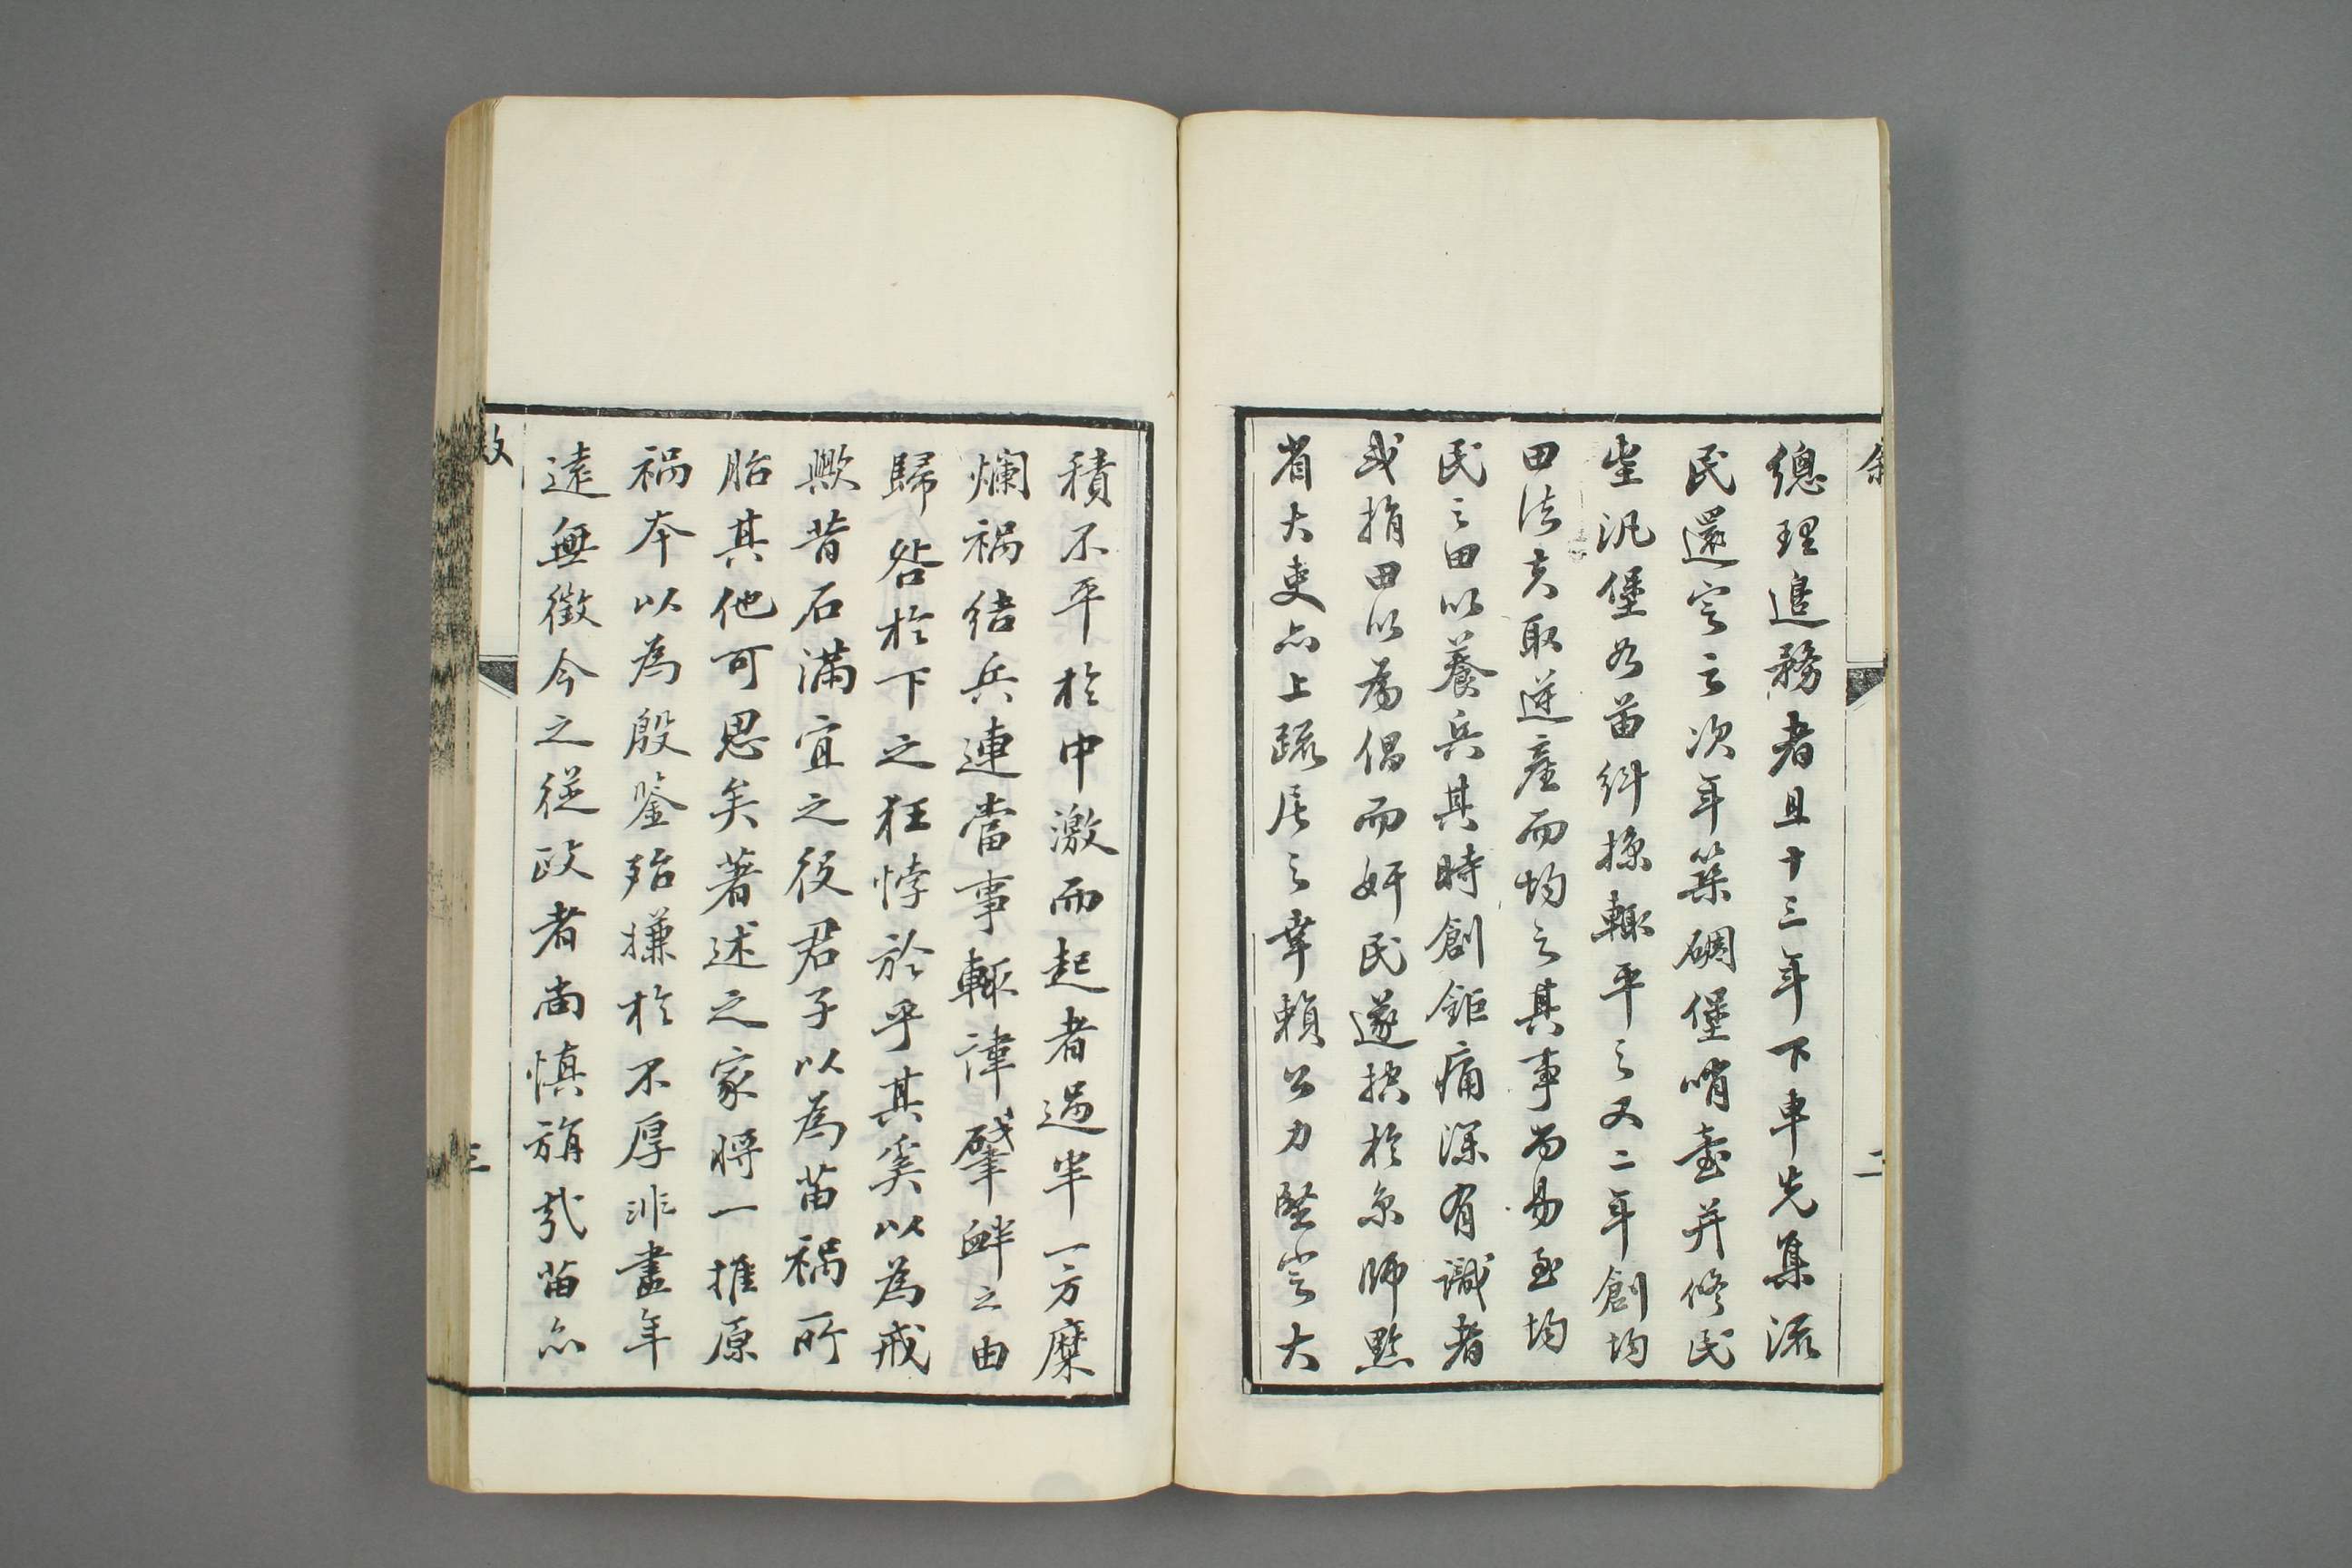 叙
二
總理邊務者且十三年下車先集流
民還定之次年築碉堡哨臺并修民
堡汛堡如苗糾掠輒平之又二年創均
田法夫取逆產而均之其事尚易至均
民之田以養兵其時創鉅痛深有識者
或捐田以為倡而奸民遂控於京師黠
省大吏亦上疏居之幸賴公力堅定大
積不平於中激而起者過半一方糜
爛禍結兵連當事輒諱肇衅之由
歸咎於下之狂悖於乎其奚以為戒
歟昔石滿宜之役君子以為苗禍所
胎其他可思矣著述之家將一推原
禍本以為殷鑒殆嫌於不厚非盡年
遠無徵今之從政者尚慎旃哉苗亦
叙
三